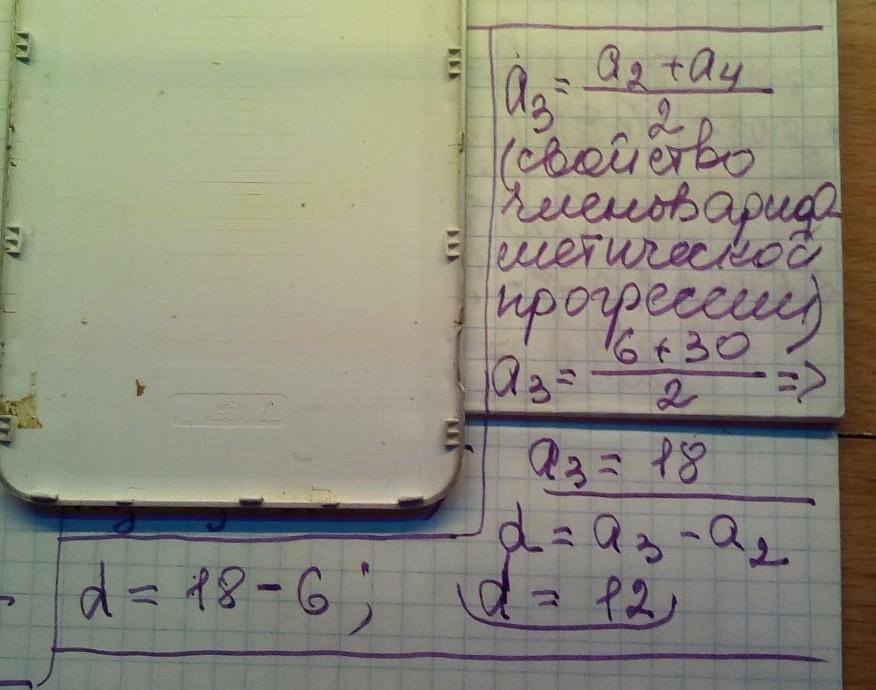 a₃ = (a₂ + a₄)/2
(свойство
членов ариф
метической
прогрессии)
a₃ = (6 + 30)/2 =>
a₃ = 18
d = a₃ - a₂
d = 18 - 6; d = 12